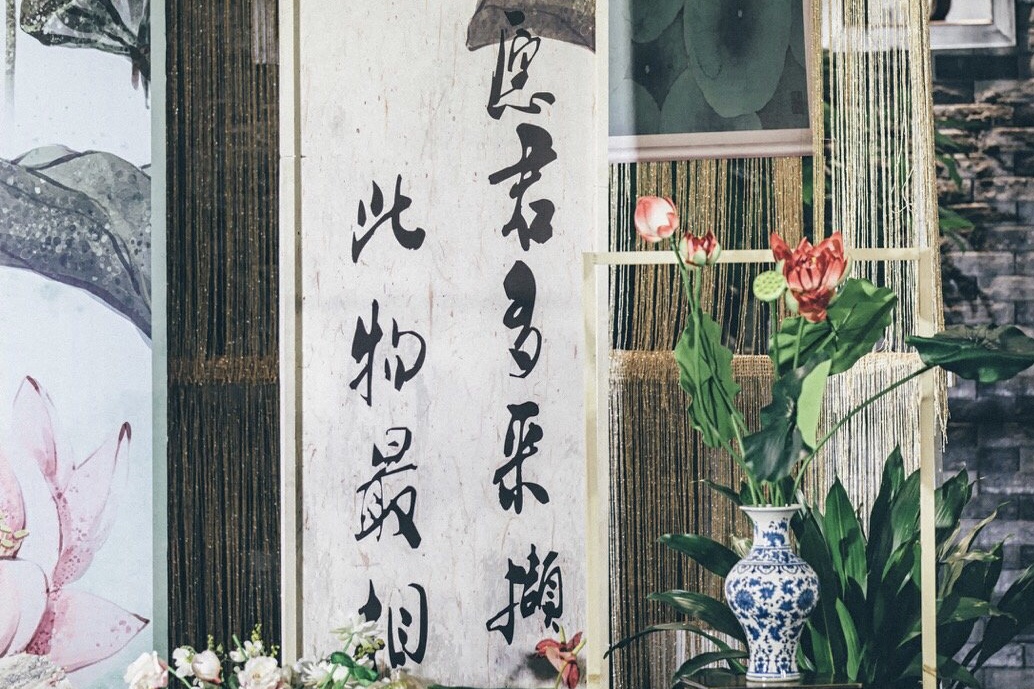 愿君多采撷
此物最相